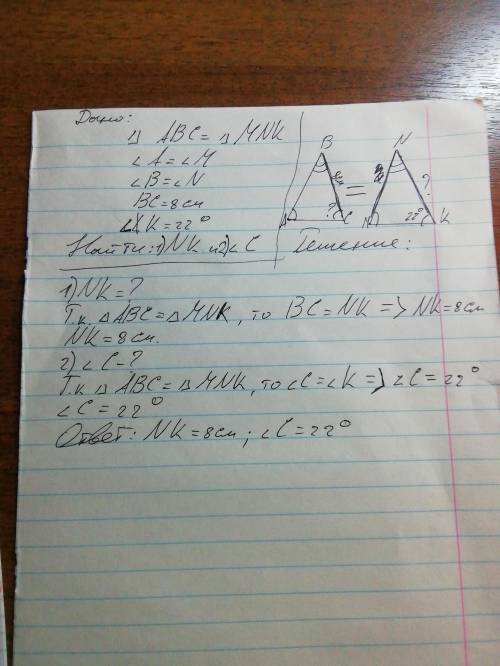 Дано:
△ ABC = △ MNK
∠A = ∠M
∠B = ∠N
BC = 8см
∠K = 22°
Найти: 1) NK и 2) ∠C
Решение:
B
N
8см
=
?
?
C
22°
K
1) NK = ?
Т.к △ ABC = △ MNK, то BC = NK => NK = 8см
NK = 8см.
2) ∠C - ?
Т.к △ ABC = △ MNK, то ∠C = ∠K => ∠C = 22°
∠C = 22°
Ответ: NK = 8см; ∠C = 22°